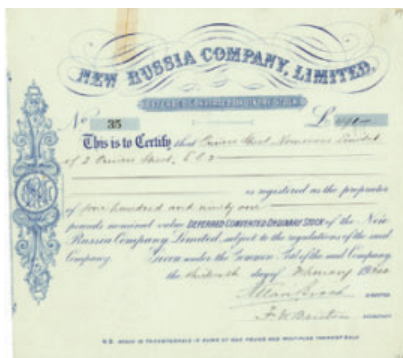 NEW RUSSIA COMPANY, LIMITED.
DEFERRED CONVERTED ORDINARY STOCK
No 35 £ 491
This is to Certify that Princes Street Nominees Limited
of 2 Princes Street, E.C.2
is registered as the proprietor
of four hundred and ninety one
pounds nominal value DEFERRED CONVERTED ORDINARY STOCK of the New
Russia Company Limited, subject to the regulations of the said
Company. Given under the Common Seal of the said Company
the day of February 19
DIRECTOR
SECRETARY
N.B. STOCK IS TRANSFERABLE IN SUMS OF ONE POUND AND MULTIPLES THEREOF ONLY